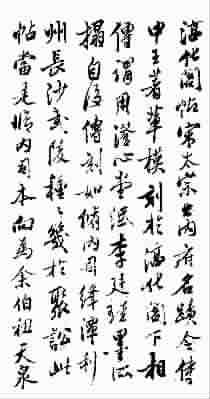 淳化閣帖宋太宗出内府名蹟令侍
中王著輩模刻於淳化閣下相
傳謂用澄心堂紙李廷珪墨所
搨自後傳刻如脩内司絳潭利
州長沙武陵種々幾於聚訟此
帖當是脩内司本向為余伯祖天泉